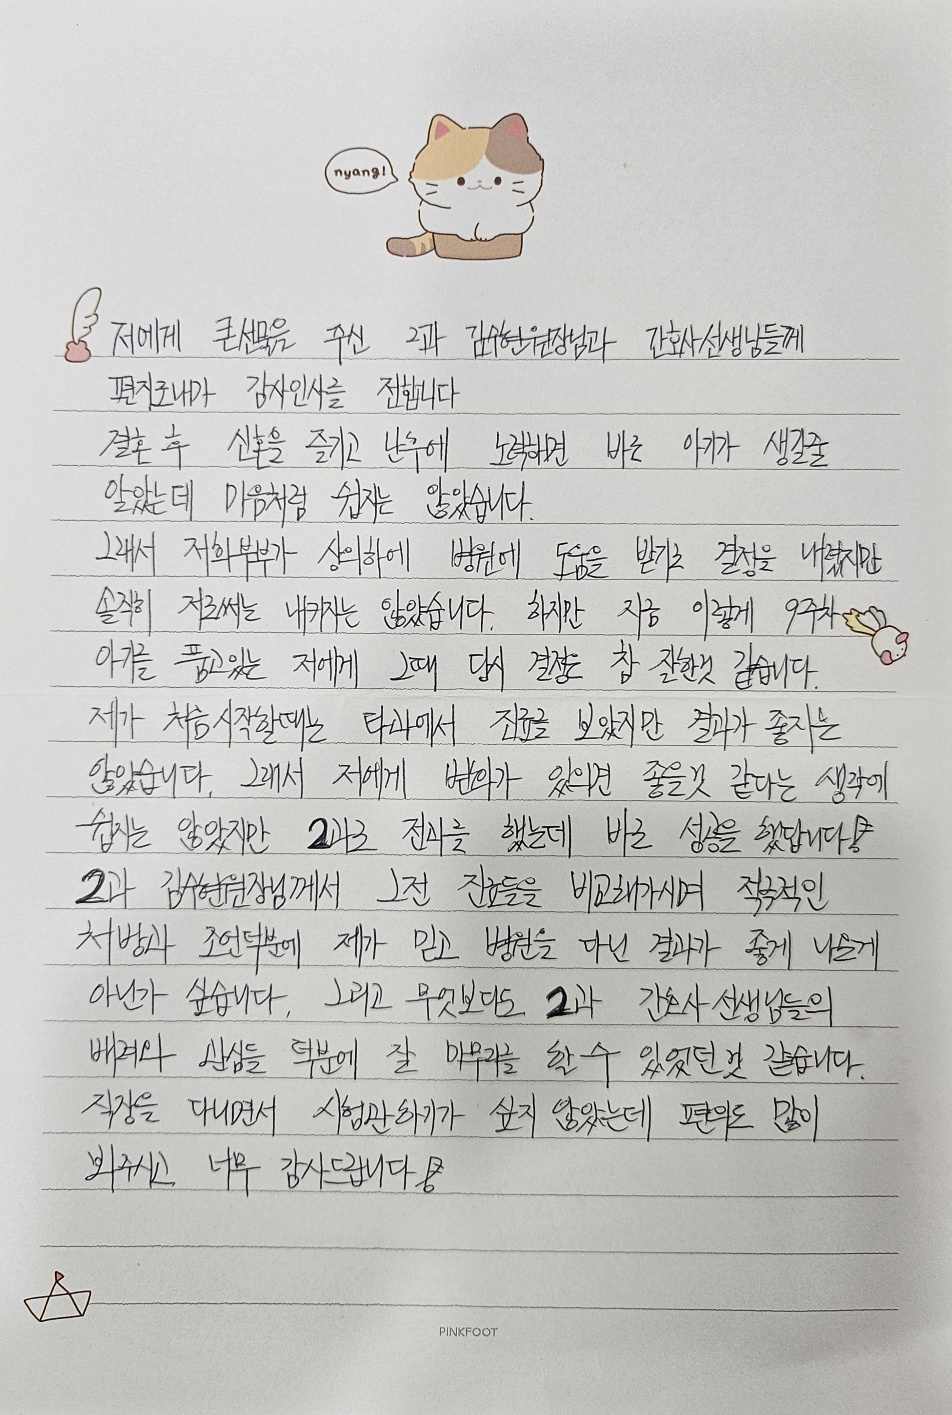 nyang!
저에게 큰선물을 주신 2과 김수현원장님과 간호사선생님들께
편지로나마 감사인사를 전합니다
결혼 후 신혼을 즐기고 난후에 노력하면 바로 아기가 생길줄
알았는데 마음처럼 쉽지는 않았습니다.
그래서 저희부부가 상의하에 병원에 도움을 받기로 결정을 내렸지만
솔직히 저로써는 내키지는 않았습니다. 하지만 지금 이렇게 9주차
아기를 품고있는 저에게 그때 당시 결정은 참 잘한것 같습니다.
제가 처음시작할때는 타과에서 진료를 보았지만 결과가 좋지는
않았습니다. 그래서 저에게 변화가 있으면 좋을것 같다는 생각에
쉽지는 않았지만 2과로 전과를 했는데 바로 성공을 했답니다
2과 김수현원장님께서 그전 진료들을 비교해가시며 적극적인
처방과 조언덕분에 제가 믿고 병원을 다닌 결과가 좋게 나온게
아닌가 싶습니다. 그리고 무엇보다도 2과 간호사선생님들의
배려와 관심들 덕분에 잘 마무리를 할 수 있었던것 같습니다.
직장을 다니면서 시험관하기가 쉽지 않았는데 편의도 많이
봐주시고 너무 감사드립니다
PINKFOOT